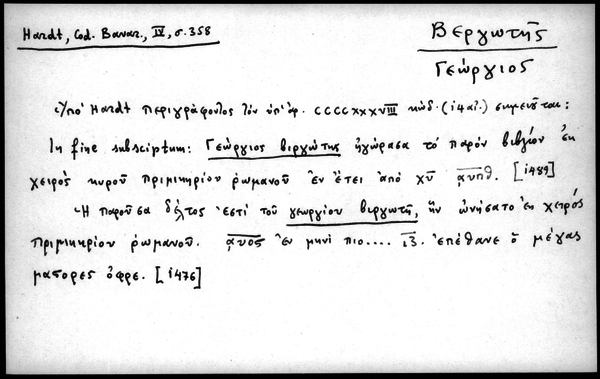 Hardt, Cod. Bavar., IV, σ. 358
Βεργωτῆς
Γεώργιος
Ὑπό Hardt περιγράφοντος τόν ὑπ' ἀρ. CCCCXXXVIII κώδ. (14 αἰ.) σημειοῦται:
In fine subscriptum: Γεώργιος βιργώτης ἠγώρασα τό παρόν βιβλίον ἐκ
χειρός κυροῦ πριμικηρίου ῥωμανοῦ ἐν ἔτει ἀπό χῦ ͵αυπθ. [1489]
Ἡ παροῦσα δέλτος ἐστί τοῦ γεωργίου βιργωτῆ, ἥν ὠνήσατο ἐκ χειρός
πριμικηρίου ῥωμανοῦ. ͵αυος ἐν μηνί πιο.... ιζ. ἐπέθανε ὁ μέγας
ματορες ὀφρε. [1476]